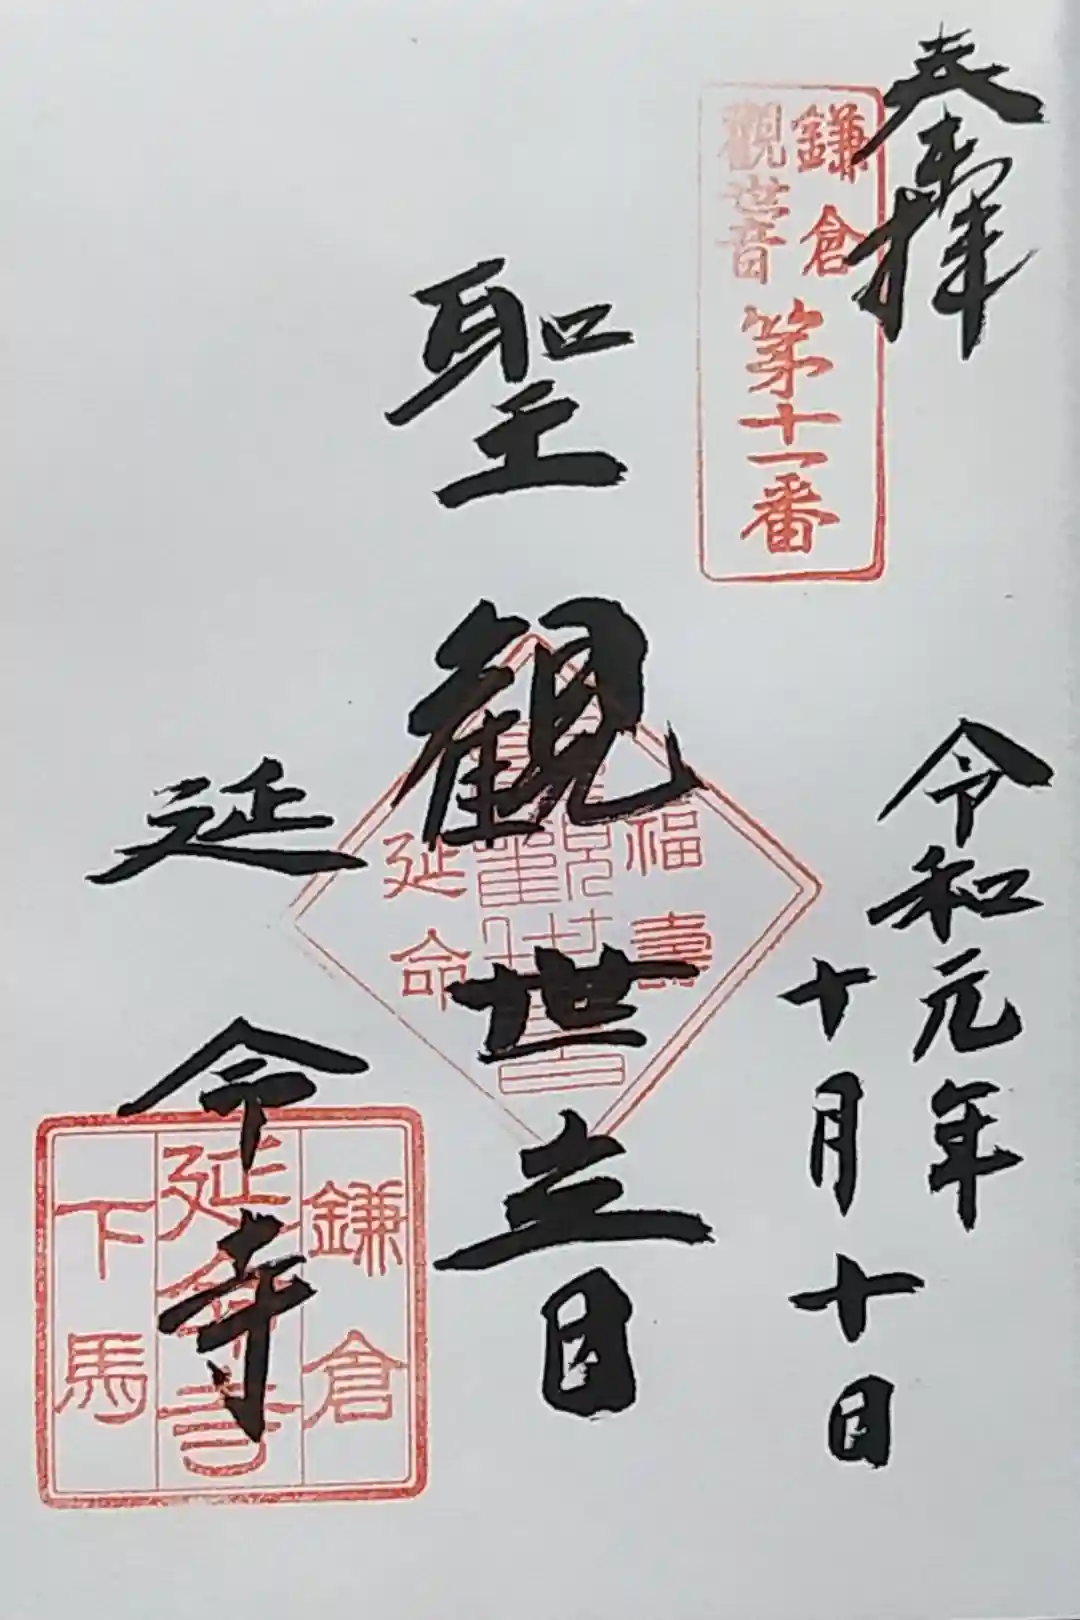 奉拝
鎌倉
觀世音
第十一番
令和元年
十月十日
聖観世音
福壽
觀世音
延命
延命寺
鎌倉
延命寺
下馬